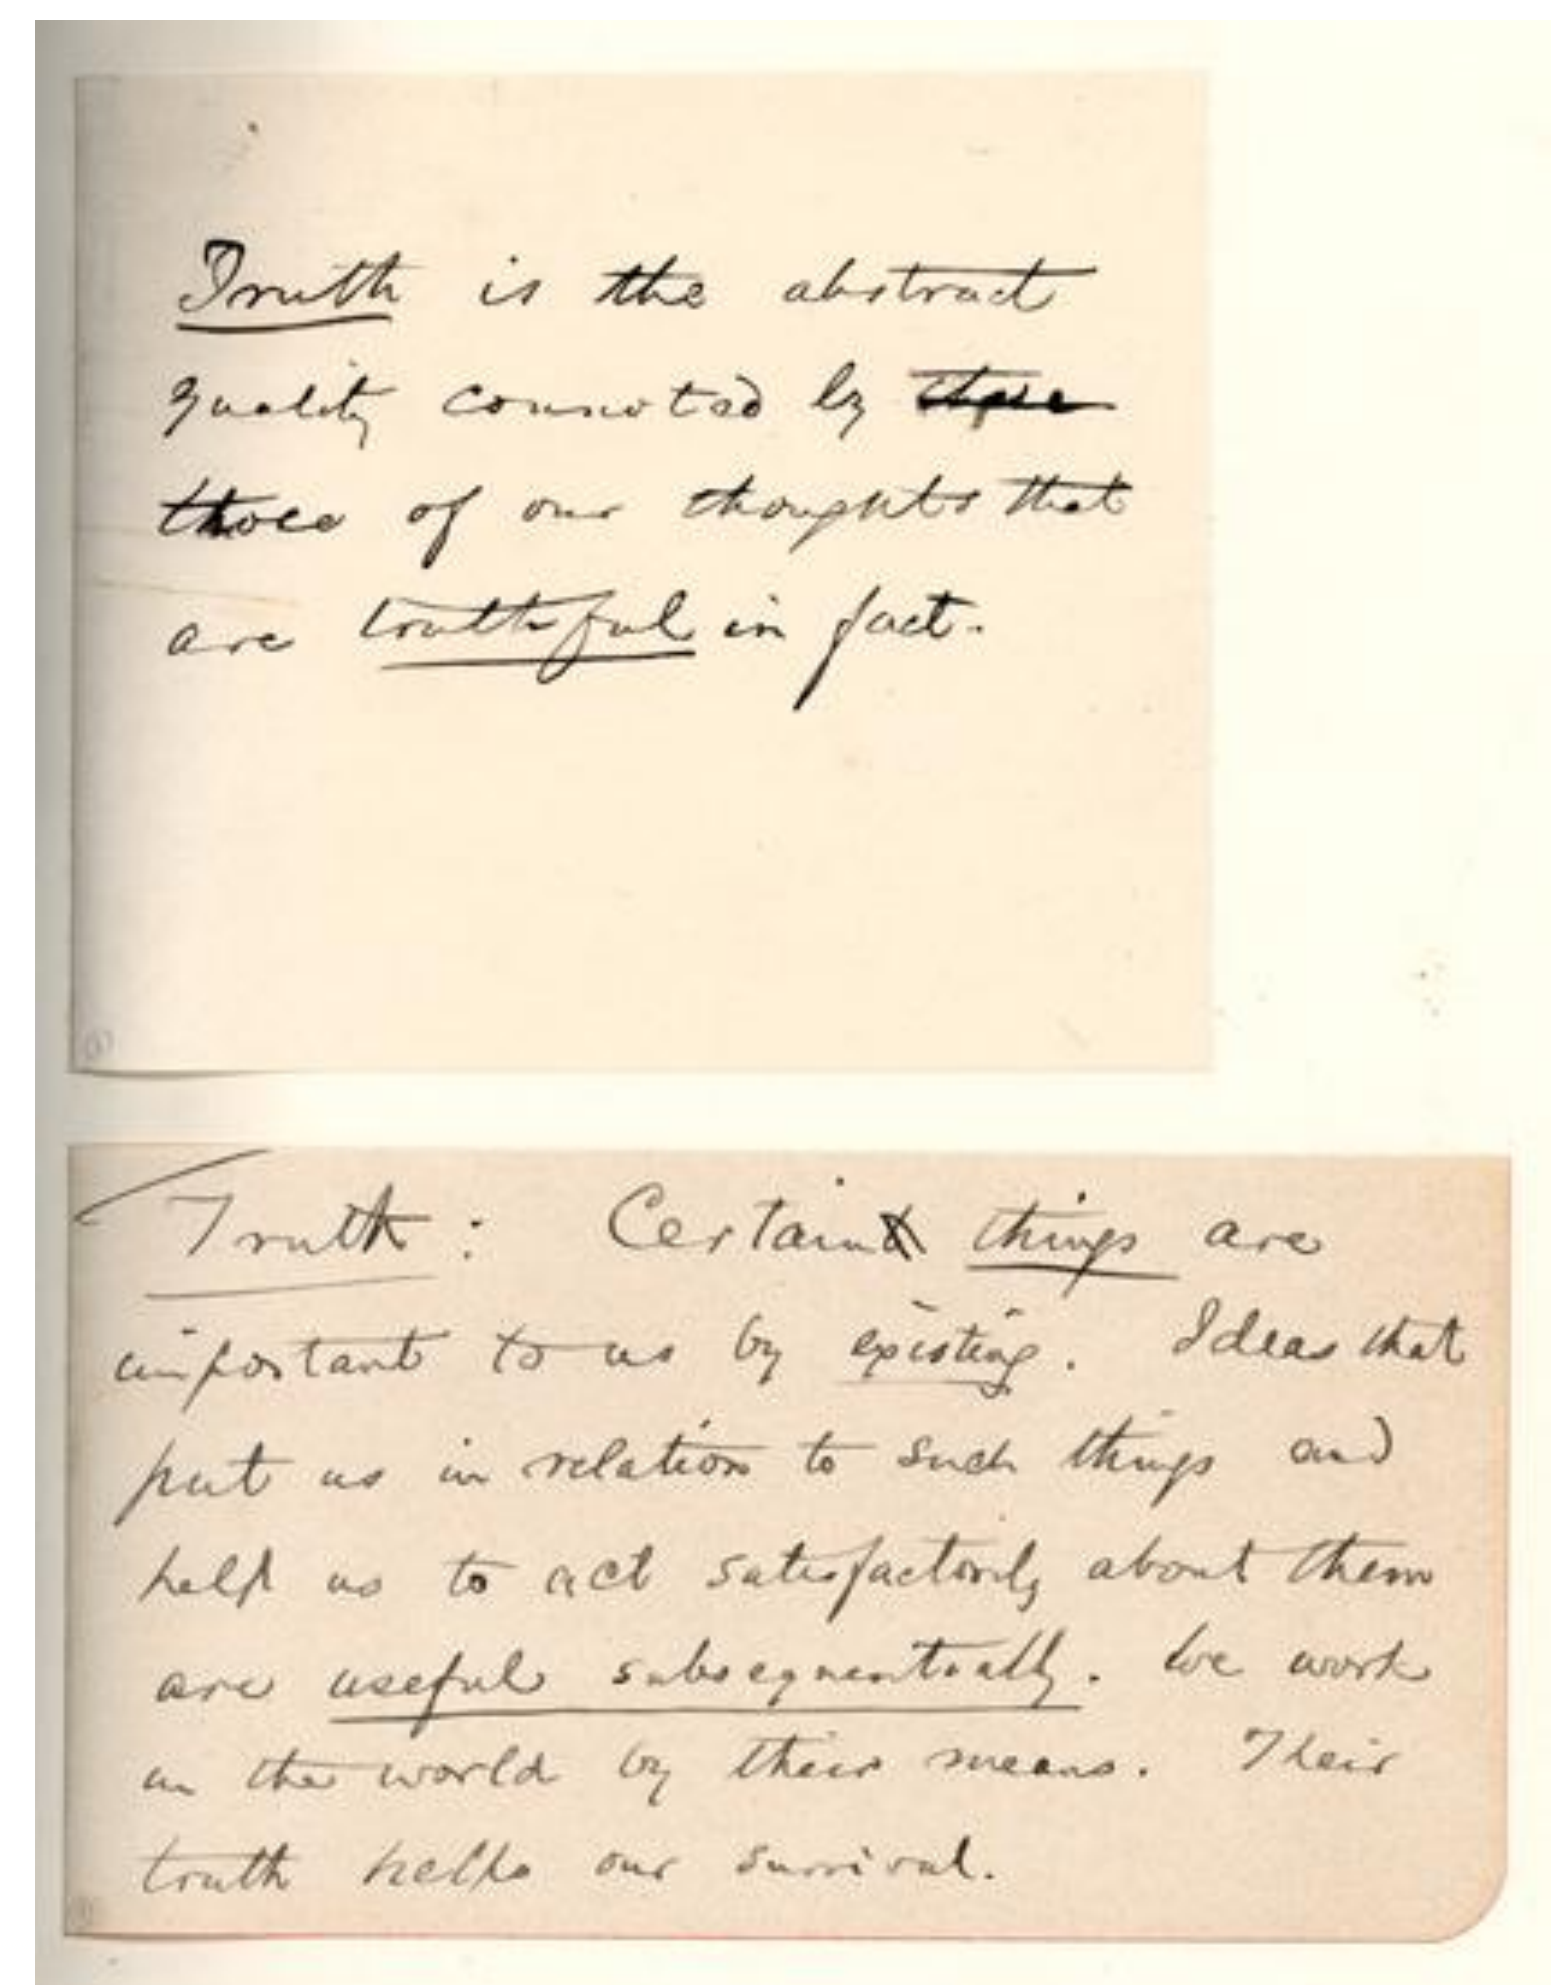 Truth is the abstract
quality connoted by
those of our thoughts that
are truthful in fact.
Truth: Certain things are
important to us by existing. Ideas that
put us in relation to such things and
help us to act satisfactorily about them
are useful subsequentially. We work
in the world by their means. Their
truth helps our survival.